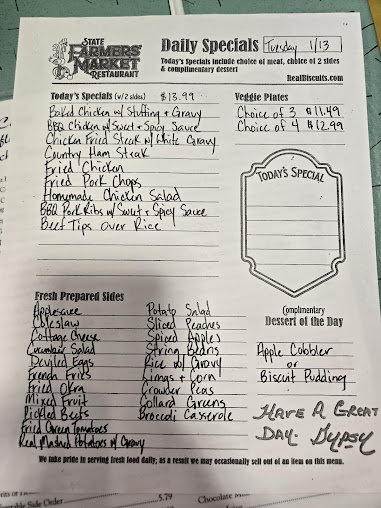 STATE
FARMERS'
MARKET
RESTAURANT
Daily Specials Tuesday 1/13
Today's Specials include choice of meat, choice of 2 sides
& complimentary dessert
RealBiscuits.com
Today's Specials (w/2 sides) $13.99
Baked Chicken w/ Stuffing + Gravy
BBQ Chicken w/ Sweet + Spicy Sauce
Chicken Fried Steak w/ White Gravy
Country Ham Steak
Fried Chicken
Fried Pork Chops
Homemade Chicken Salad
BBQ Pork Ribs w/ Sweet + Spicy Sauce
Beef Tips Over Rice
Veggie Plates
Choice of 3 $11.49
Choice of 4 $12.99
TODAY'S SPECIAL
Fresh Prepared Sides
Applesauce
Coleslaw
Cottage Cheese
Cucumber Salad
Deviled Eggs
French Fries
Fried Okra
Mixed Fruit
Pickled Beets
Fried Green Tomatoes
Real Mashed Potatoes w/ Gravy
Potato Salad
Sliced Peaches
Spiced Apples
String Beans
Rice w/ Gravy
Limas + Corn
Crowder Peas
Collard Greens
Broccoli Casserole
Complimentary
Dessert of the Day
Apple Cobbler
or
Biscuit Pudding
HAVE A GREAT
DAY. Gypsy
We take pride in serving fresh food daily; as a result we may occasionally sell out of an item on this menu.
Side Order 5.79
Chocolate